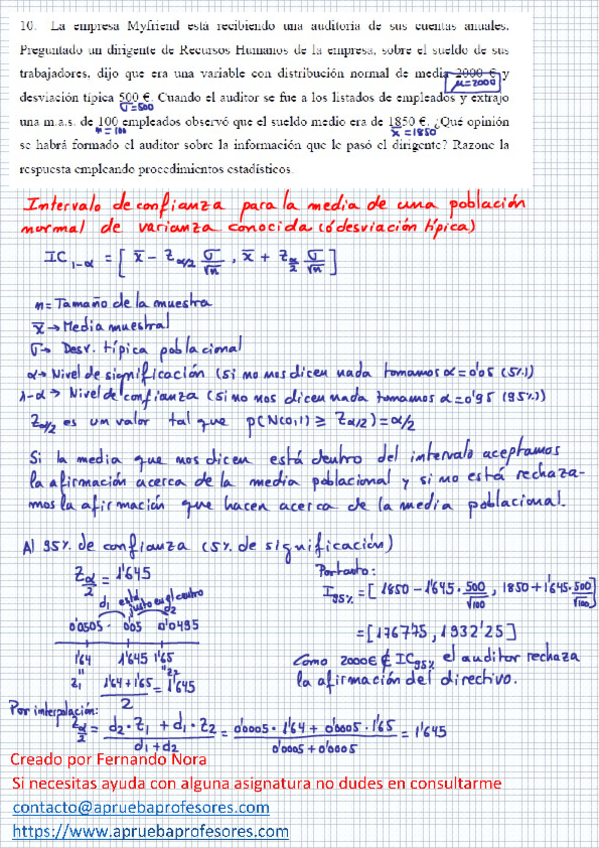 10. La empresa Myfriend está recibiendo una auditoría de sus cuentas anuales.
Preguntado un dirigente de Recursos Humanos de la empresa, sobre el sueldo de sus
trabajadores, dijo que era una variable con distribución normal de media 2000 € y
μ=2000
desviación típica 500 €. Cuando el auditor se fue a los listados de empleados y extrajo
σ=500
una m.a.s. de 100 empleados observó que el sueldo medio era de 1850 €. ¿Qué opinión
n=100 x̄=1850
se habrá formado el auditor sobre la información que le pasó el dirigente? Razone la
respuesta empleando procedimientos estadísticos.
Intervalo de confianza para la media de una población
normal de varianza conocida (ó desviación típica)
IC₁₋α = [ x̄ - Zα/2 σ/√n , x̄ + Zα/2 σ/√n ]
n = Tamaño de la muestra
x̄ → Media muestral
σ → Desv. típica poblacional
α → Nivel de significación (si no nos dicen nada tomamos α=0'05 (5%))
1-α → Nivel de confianza (si no nos dicen nada tomamos α=0'95 (95%))
Zα/2 es un valor tal que p(N(0,1) ≥ Zα/2) = α/2
Si la media que nos dicen está dentro del intervalo aceptamos
la afirmación acerca de la media poblacional y si no está rechaza-
mos la afirmación que hacen acerca de la media poblacional.
Al 95% de confianza (5% de significación)
Zα/2 = 1'645
d₁ está justo en el centro d₂
0'0505 0'05 0'0495
1'64 1'645 1'65
Z₁ Z₂
(1'64+1'65)/2 = 1'645
Por tanto:
I95% = [ 1850 - 1'645 · 500/√100 , 1850 + 1'645 · 500/√100 ]
= [1767'75 , 1932'25]
Como 2000€ ∉ IC95% el auditor rechaza
la afirmación del directivo.
Por interpolación:
Zα/2 = (d₂·Z₁ + d₁·Z₂)/(d₁+d₂) = (0'0005·1'64 + 0'0005·1'65)/(0'0005+0'0005) = 1'645
Creado por Fernando Nora
Si necesitas ayuda con alguna asignatura no dudes en consultarme
contacto@apruebaprofesores.com
https://www.apruebaprofesores.com